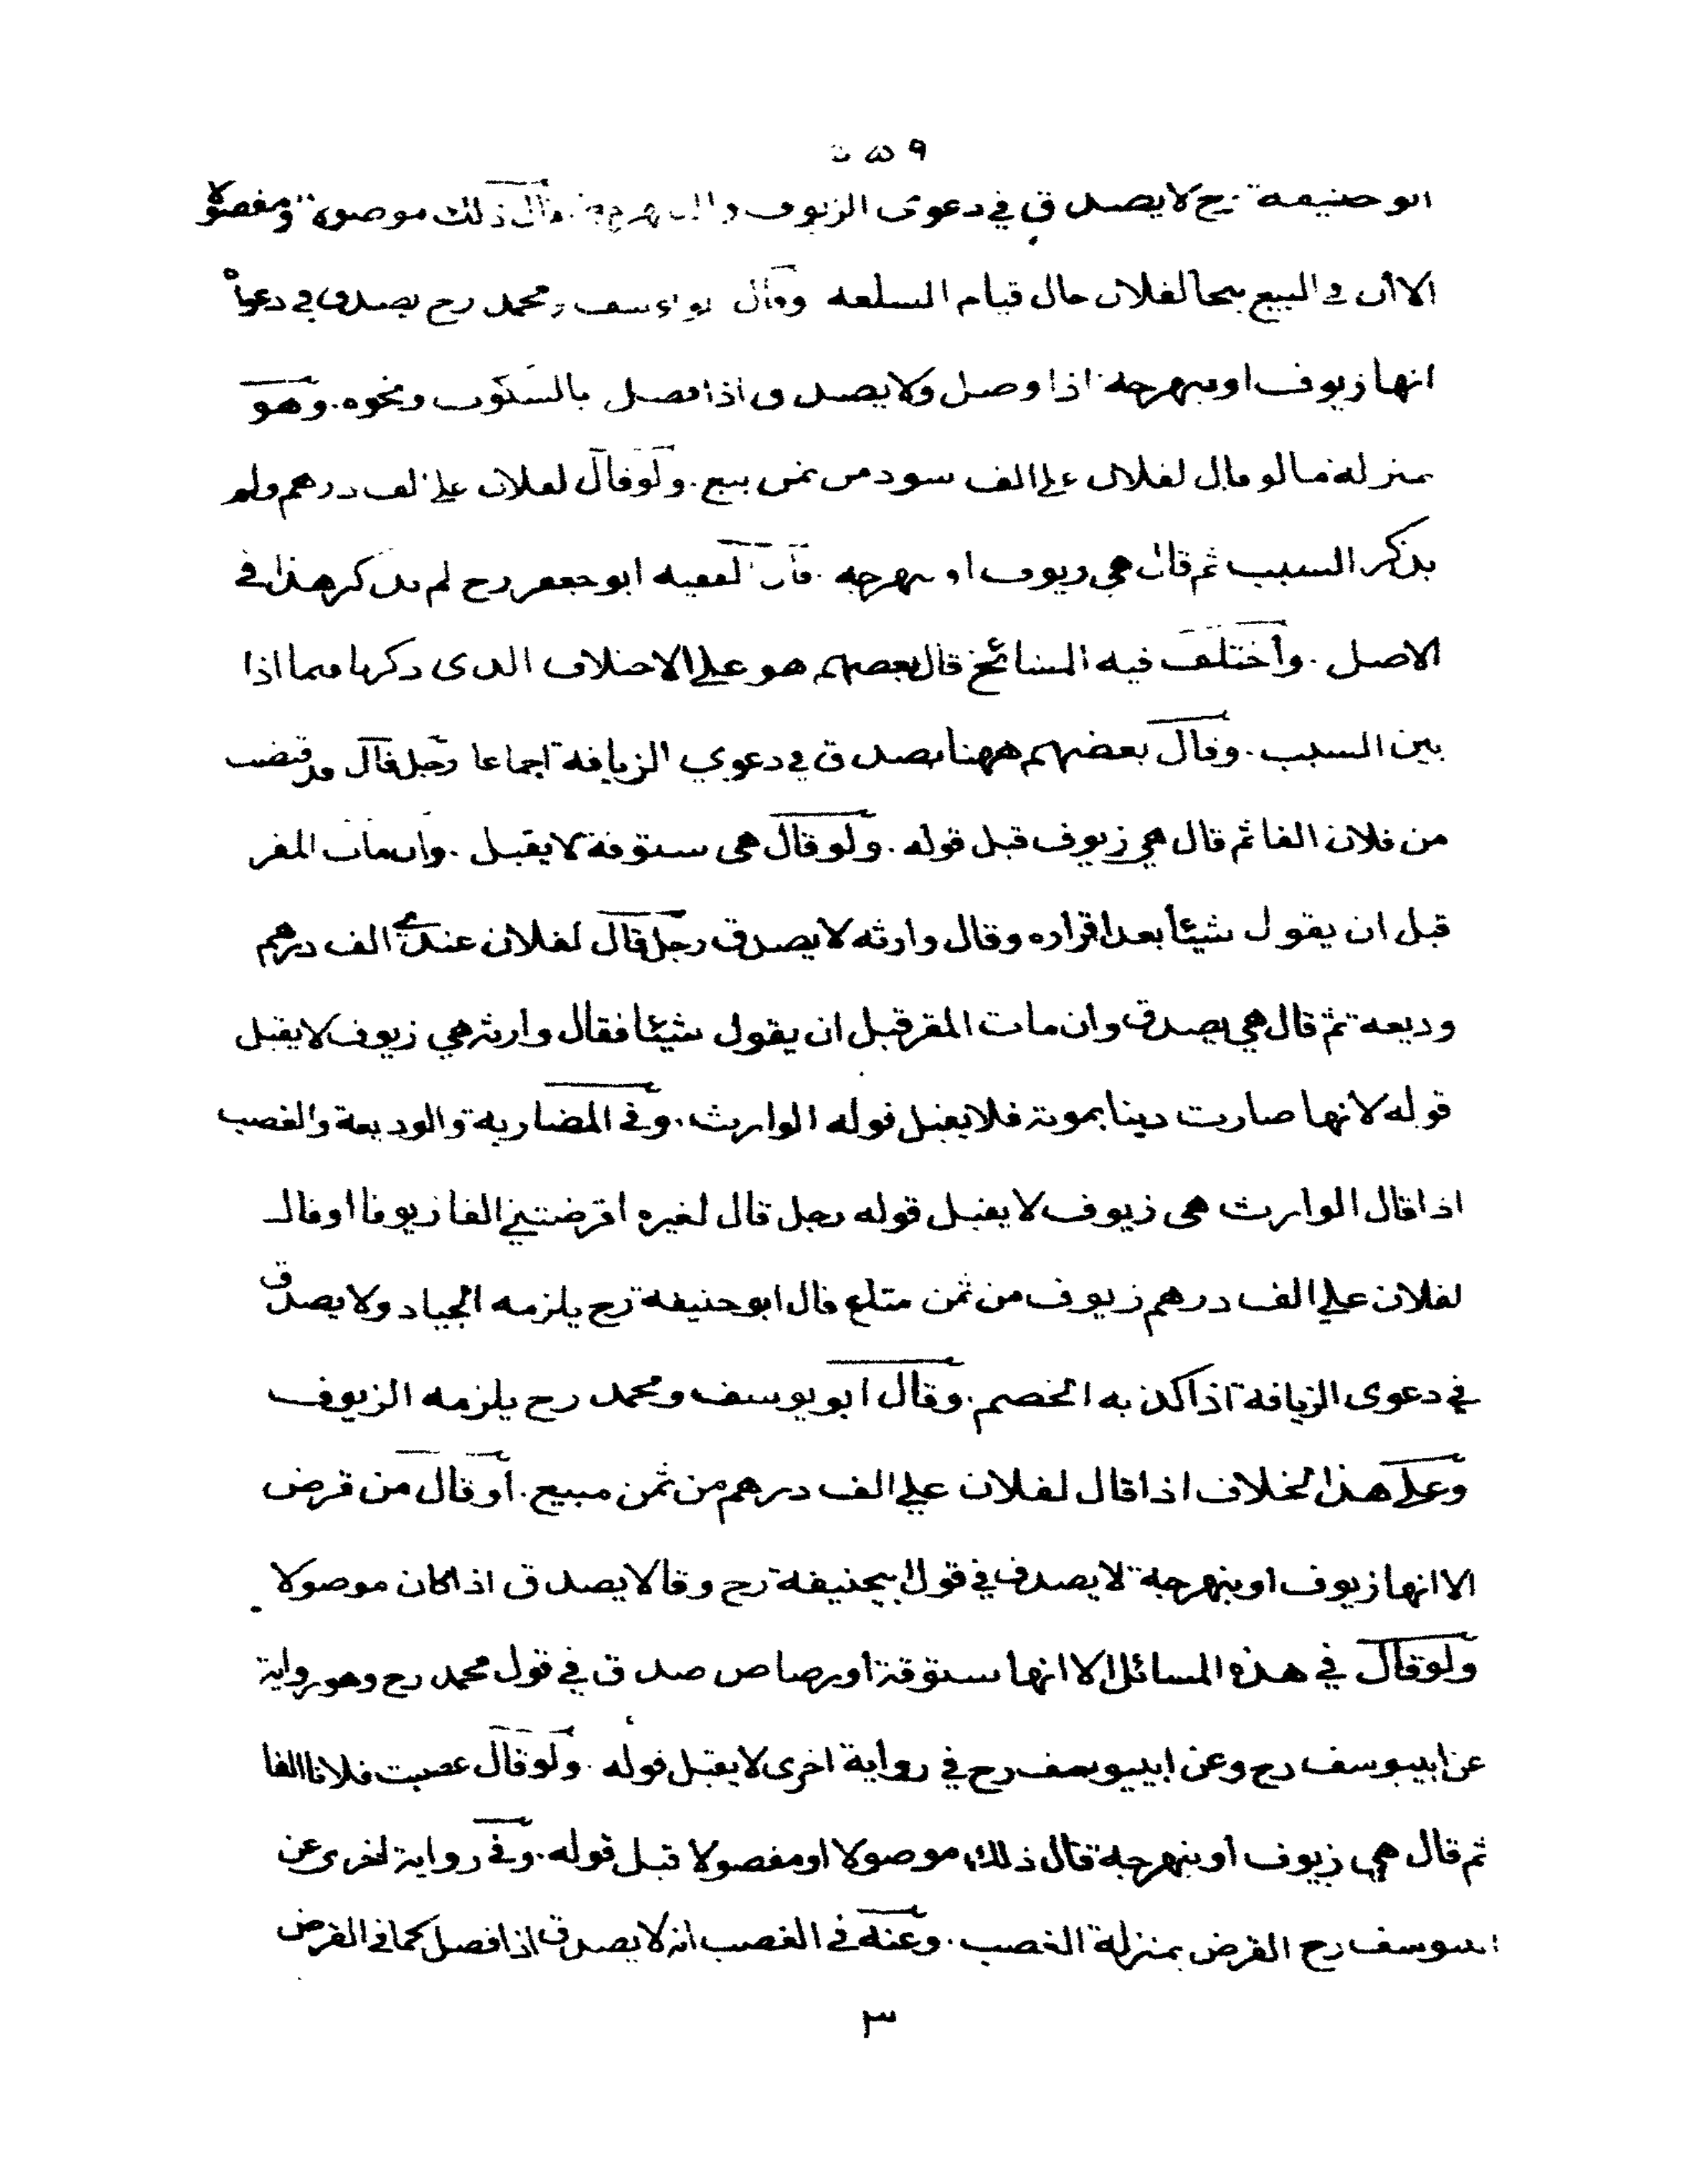 ابو حنيفة رح لا يصدق في دعوى الزيوف والنبهرجة قال ذلك موصولا ومفصولا
الا ان في البيع يتحالفان حال قيام السلعة وقال ابو يوسف ومحمد رح يصدق في دعواه
انها زيوف او نبهرجة اذا وصل ولا يصدق اذا فصل بالسكوت ونحوه. وهو
بمنزلة ما لو قال لفلان علي الف سود من ثمن بيع. ولو قال لفلان علي الف درهم ولم
يذكر السبب ثم قال هي زيوف او نبهرجة. قال الفقيه ابو جعفر رح لم يذكر هذا في
الاصل. واختلف فيه المشائخ قال بعضهم هو علي الاختلاف الذي ذكرنا فيما اذا
بين السبب. وقال بعضهم ههنا يصدق في دعوي الزيافة اجماعا رجل قال قد قبضت
من فلان الفا ثم قال هي زيوف قبل قوله. ولو قال هي ستوقة لا يقبل. وان مات المقر
قبل ان يقول شيئا بعد اقراره وقال وارثه لا يصدق رجل قال لفلان عندي الف درهم
وديعة ثم قال هي يصدق وان مات المقر قبل ان يقول شيئا فقال وارثه هي زيوف لا يقبل
قوله لانها صارت دينا بموته فلا يقبل قوله الوارث. وفي المضاربة والوديعة والغصب
اذا قال الوارث هي زيوف لا يقبل قوله رجل قال لغيره اقرضتني الفا زيوفا او قال
لفلان علي الف درهم زيوف من ثمن متاع قال ابو حنيفة رح يلزمه الجياد ولا يصدق
في دعوى الزيافة اذا كذبه الخصم. وقال ابو يوسف ومحمد رح يلزمه الزيوف
وعلي هذا الخلاف اذا قال لفلان علي الف درهم من ثمن مبيع. او قال من قرض
الا انها زيوف او بنهرجة لا يصدق في قول ابيحنيفة رح وقالا يصدق اذا كان موصولا
ولو قال في هذه المسائل الا انها ستوقة او رصاص صدق في قول محمد رح وهو رواية
عن ابييوسف رح وعن ابييوسف رح في رواية اخرى لا يقبل قوله. ولو قال غصبت فلانا الفا
ثم قال هي زيوف او بنهرجة قال ذلك موصولا او مفصولا قبل قوله. وفي رواية اخرى عن
ابييوسف رح القرض بمنزلة الغصب. وعنه في الغصب انه لا يصدق اذا فصل كما في القرض
٣